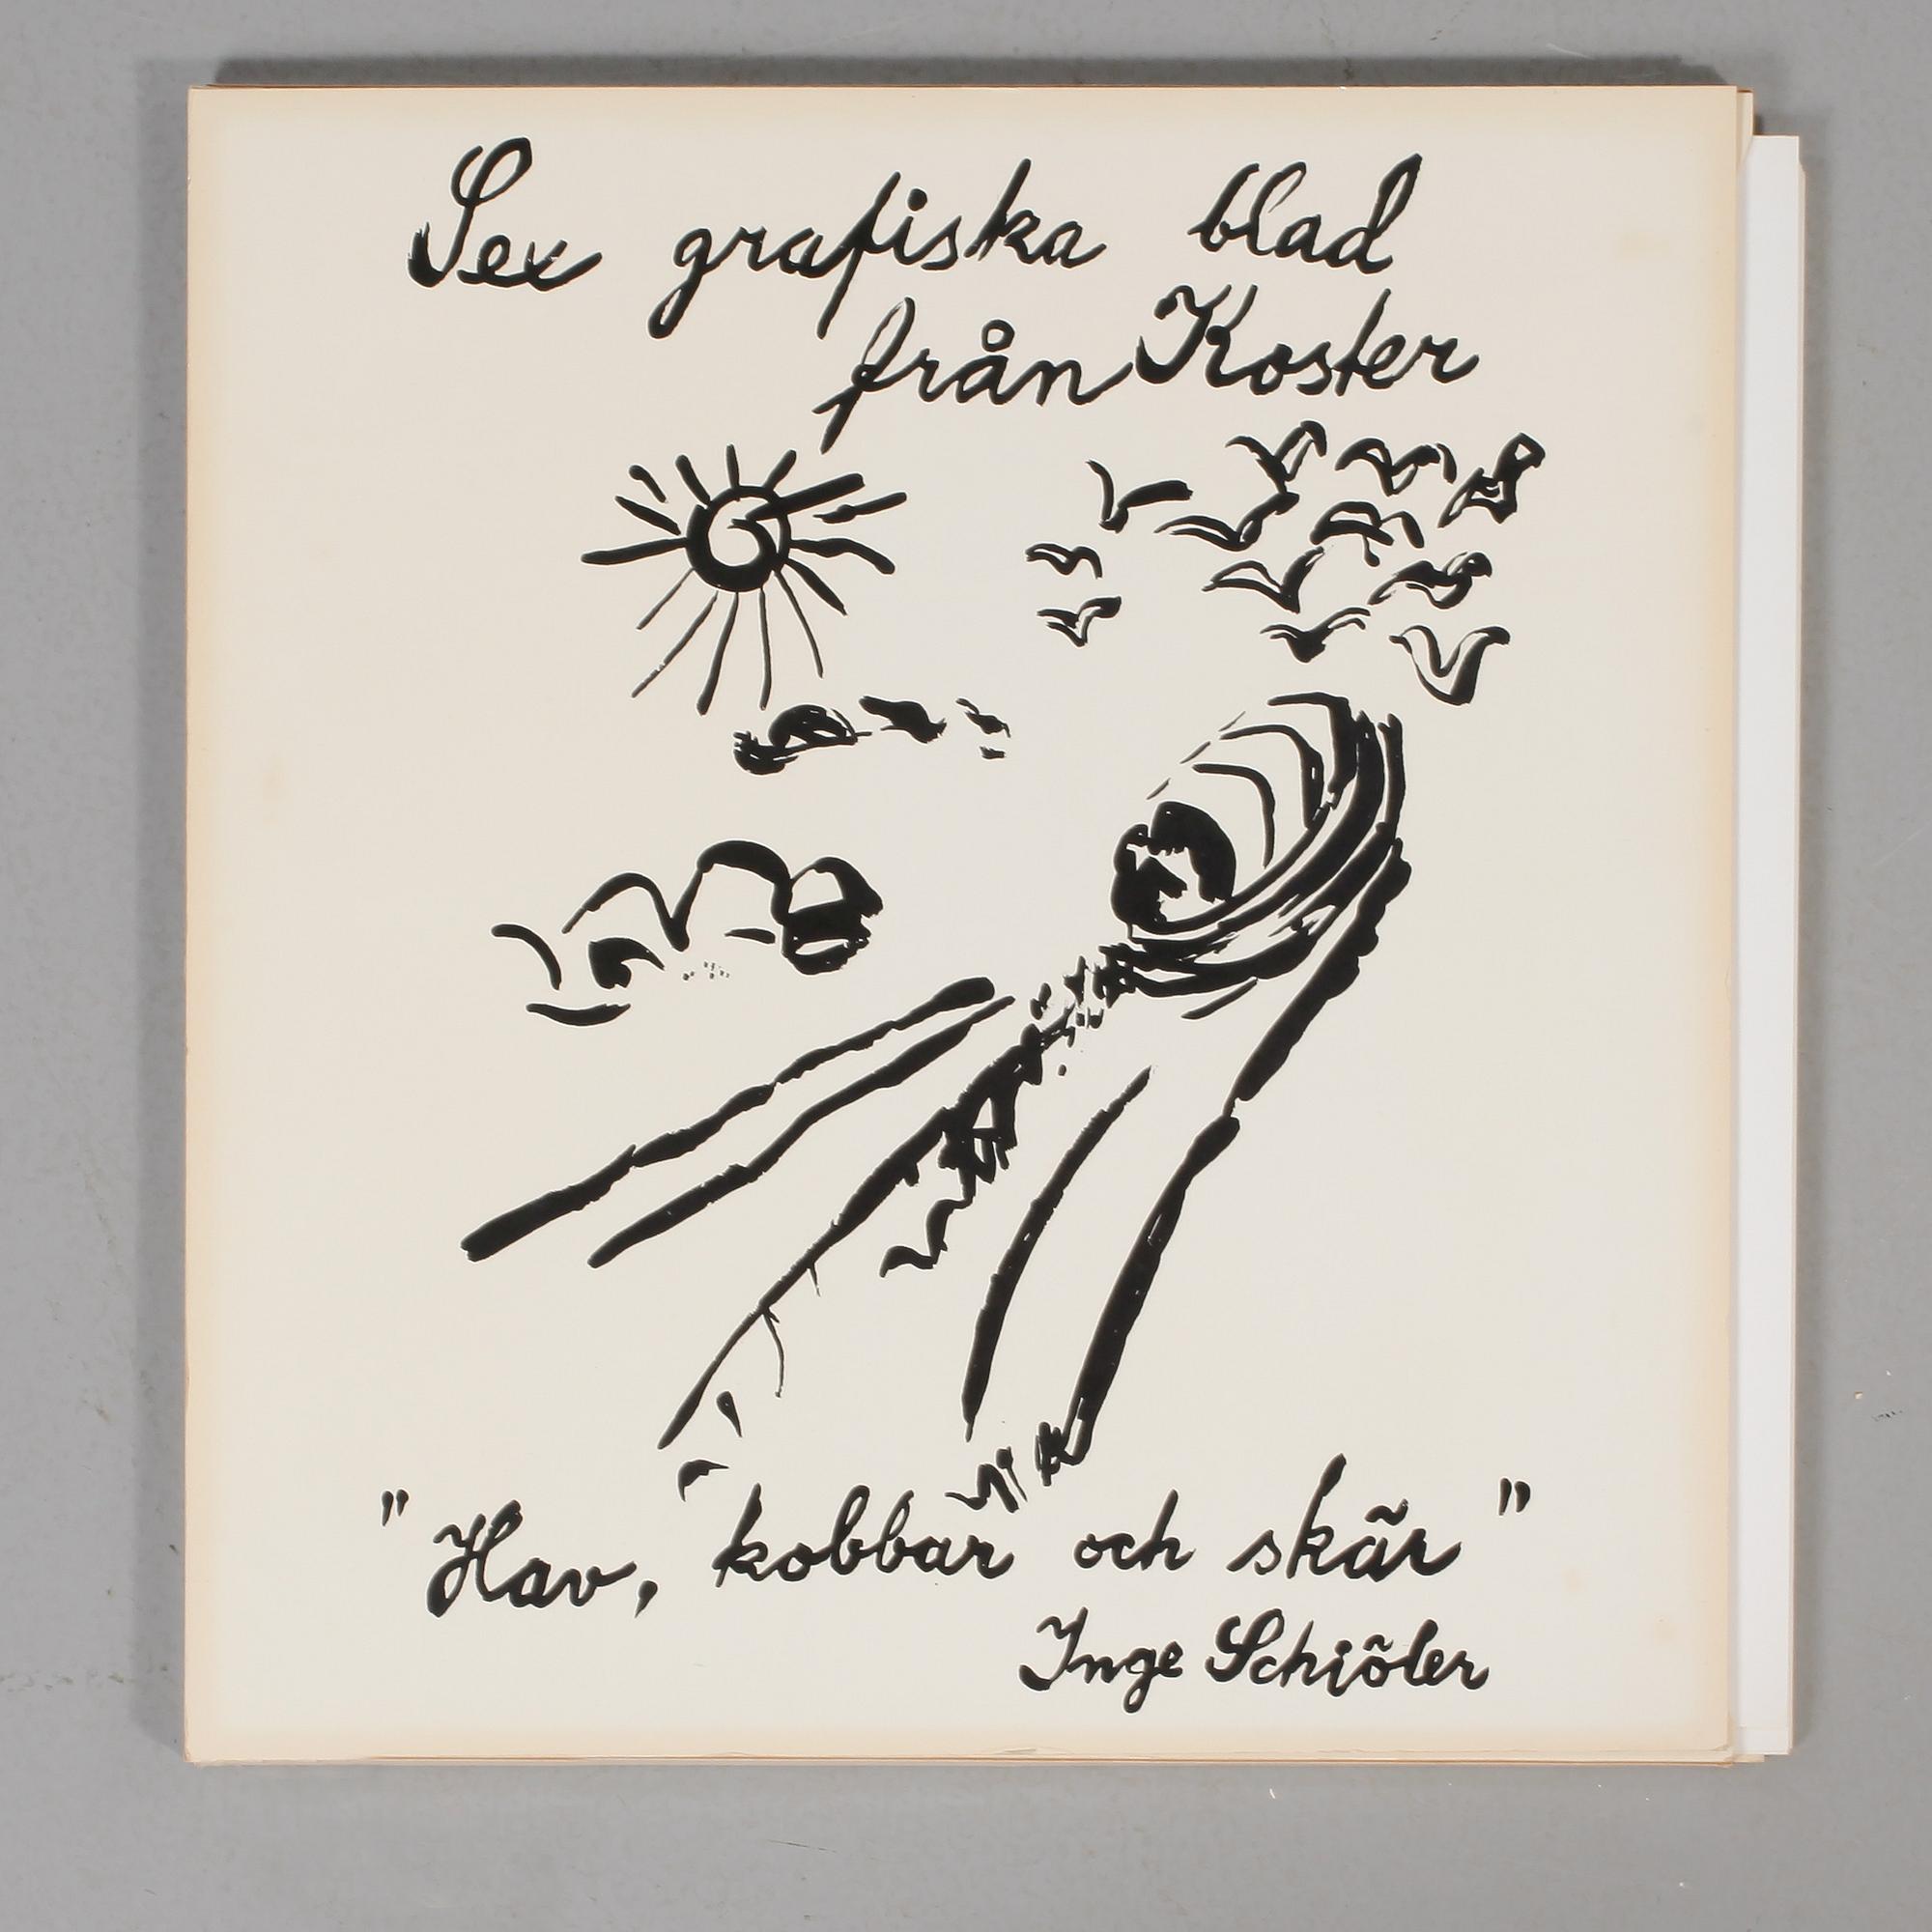 Sex grafiska blad
från Koster
"Hav, kobbar och skär"
Inge Schiöler